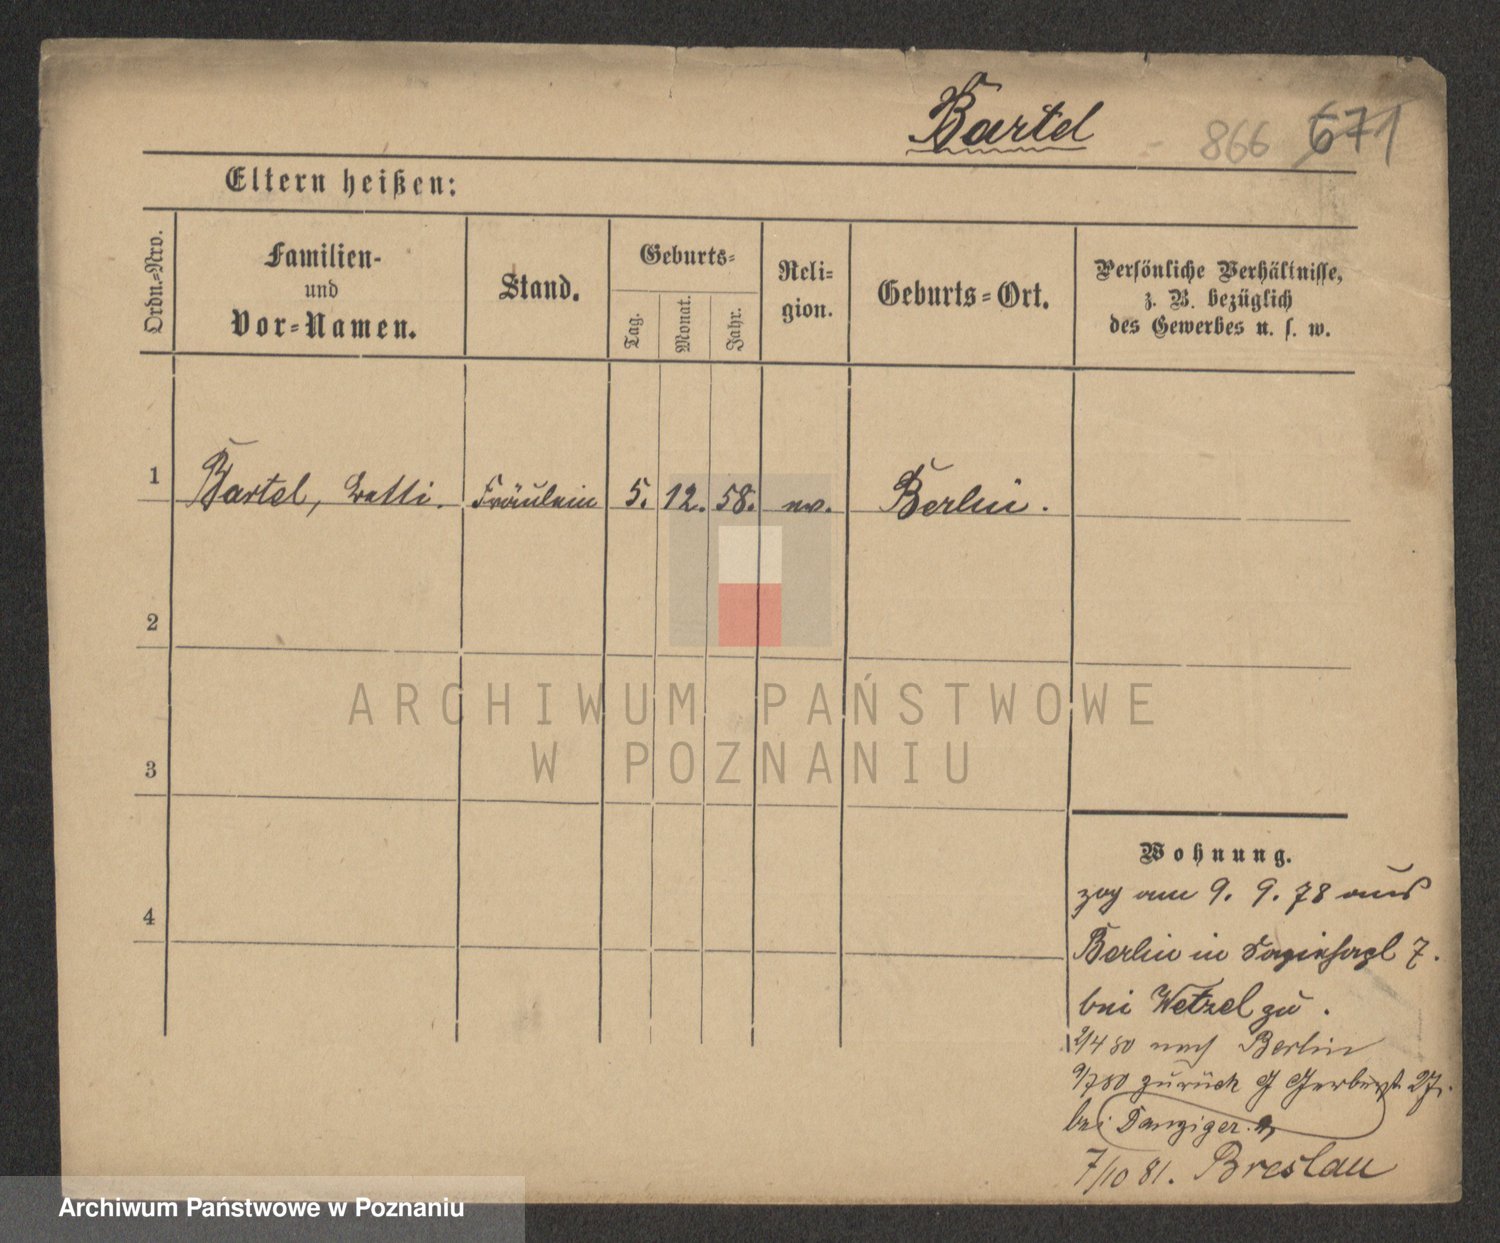 Bartel
866 671
Eltern heißen:
Ordn.=Nro.
Familien-
und
Vor=Namen.
Stand.
Geburts=
Tag.
Monat.
Jahr.
Reli=
gion.
Geburts=Ort.
Persönliche Verhältnisse,
z. B. bezüglich
des Gewerbes u. s. w.
1
Bartel, Fräulein 5. 12. 58. ev. Berlin.
2
3
4
Wohnung.
zog am 9. 9. 78 aus
Berlin in 7.
bei Wetzel zu.
2/4 80 nach Berlin
9/7 80 zurück Gerberst. 27.
bei Danziger.
7/10 81. Breslau
ARCHIWUM PAŃSTWOWE
W POZNANIU
Archiwum Państwowe w Poznaniu